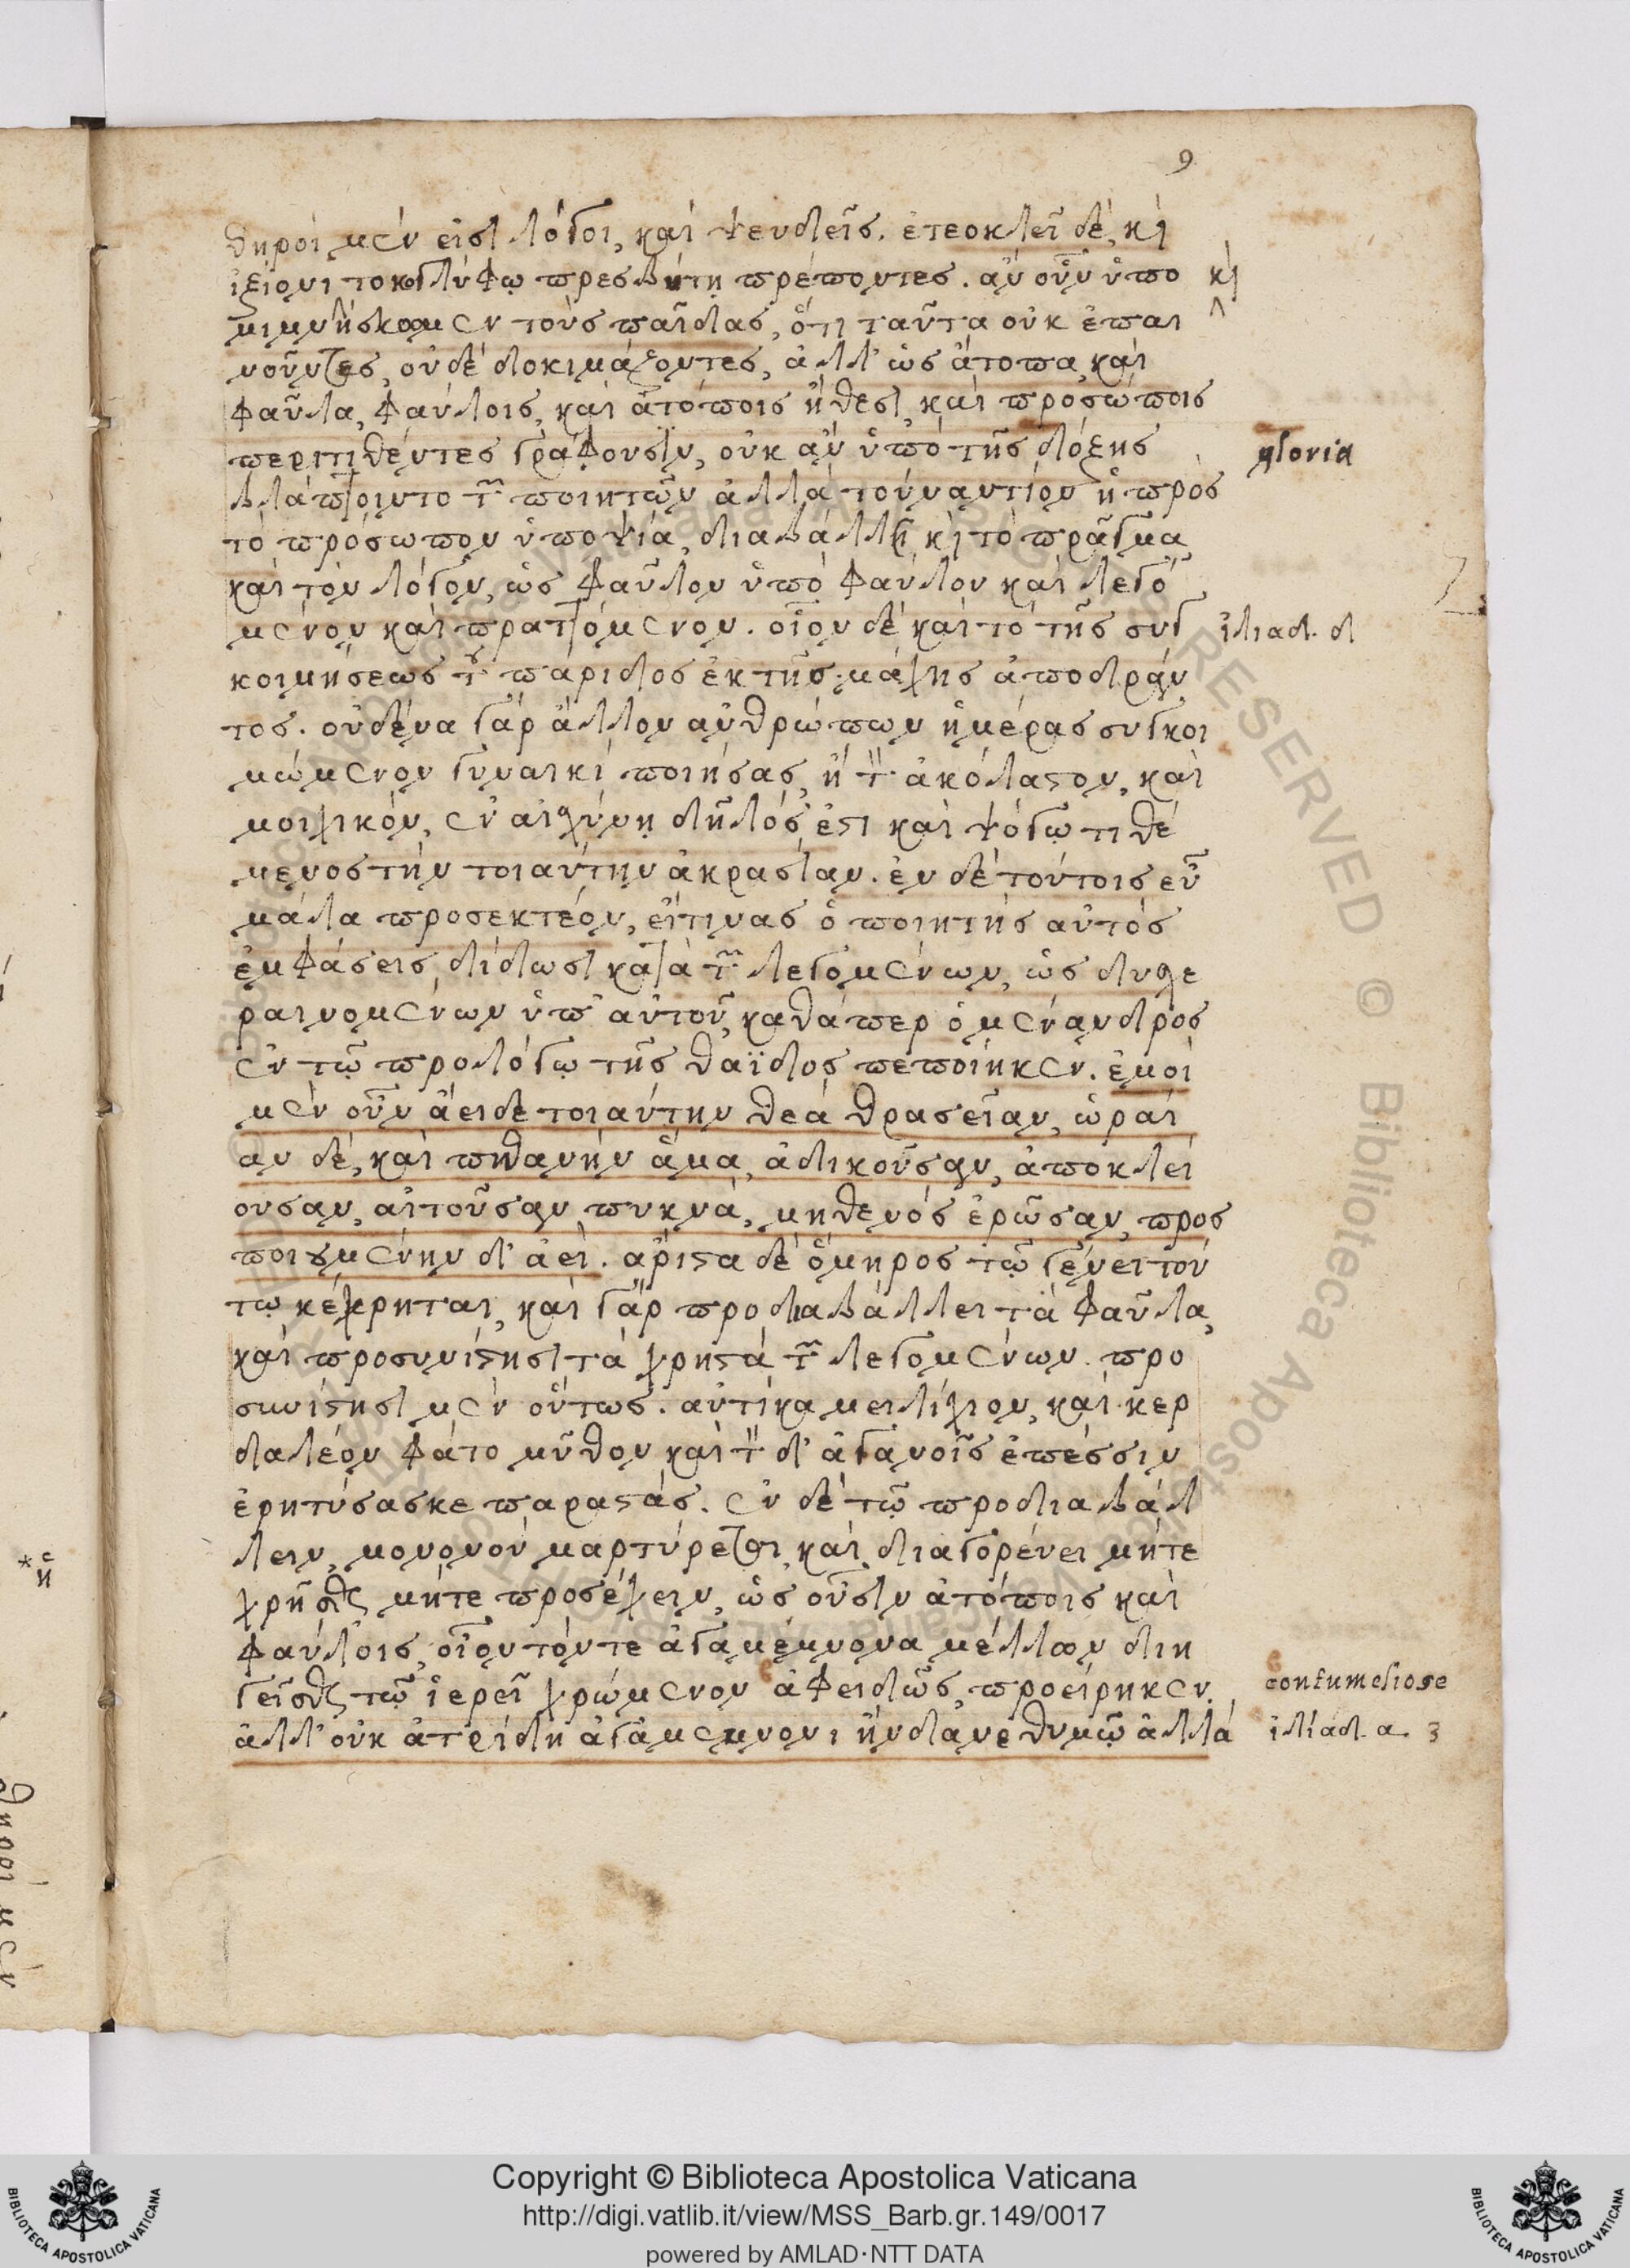 9
θηροὶ μὲν εἰσὶ λόγοι, καὶ ψευδεῖς. ἐτεοκλεῖ δὲ, κὶ
ἰξίονι τοκογλύφω πρεσβύτη πρέποντες. ἀν οὖν ὑπο κὶ
μιμνήσκωμεν τοὺς παῖδας, ὅτι ταῦτα οὐκ ἐπαι
νοῦντες, οὐδὲ δοκιμάζοντες, ἀλλ' ὡς ἄτοπα, καὶ
φαῦλα, φαύλοις, καὶ ἀτόποις ἤθεσι, καὶ προσώποις
περιτιθέντες γράφουσιν, οὐκ ἂν ὑπὸ τῆς δόξης gloria
βλάπτοιντο τῶν ποιητῶν ἀλλὰ τοὐναντίον ἡ πρὸς
τὸ πρόσωπον ὑποψία, διαβάλλει κὶ τὸ πρᾶγμα,
καὶ τὸν λόγον, ὡς φαῦλον ὑπὸ φαύλου καὶ λεγό
μενον καὶ πραττόμενον. οἷον δὲ καὶ τὸ τῆς συγ ἰλιαδ. δ
κοιμήσεως τοῦ πάριδος ἐκ τῆς μάχης ἀποδράν
τος. οὐδένα γὰρ ἄλλον ἀνθρώπων ἡμέρας συγκοι
μώμενον γυναικὶ ποιήσας, ἢ τὸν ἀκόλαστον, καὶ
μοιχικὸν, ἐν αἰσχύνη δῆλός ἐστι καὶ ψόγω τιθέ
μενος τὴν τοιαύτην ἀκρασίαν. ἐν δὲ τούτοις εὖ
μάλα προσεκτέον, εἴτινας ὁ ποιητὴς αὐτὸς
ἐμφάσεις δίδωσι κατὰ τῶν λεγομένων, ὡς δυσχε
ραινομένων ὑπ' αὐτοῦ, καθάπερ ὁ μένανδρος
ἐν τῷ προλόγῳ τῆς θαΐδος πεποίηκεν. ἐμοὶ
μὲν οὖν ἄειδε τοιαύτην θεὰ θρασεῖαν, ὡραί
αν δὲ, καὶ πιθανὴν ἅμα, ἀδικοῦσαν, ἀποκλεί
ουσαν, αἰτοῦσαν πυκνὰ, μηθενὸς ἐρῶσαν, προς
ποιουμένην δ' ἀεί. ἄριστα δὲ ὅμηρος τῷ γένει τού
τω κέχρηται, καὶ γὰρ προδιαβάλλει τὰ φαῦλα,
καὶ προσυνίστησι τὰ χρηστὰ τῶν λεγομένων. προ
συνίστησι μὲν οὕτως. αὐτίκα μειλίχιον, καὶ κερ
δαλέον φάτο μῦθον καὶ τὸν δ' ἀγανοῖς ἐπέσσιν
ἐρητύσασκε παραστάς. ἐν δὲ τῷ προδιαβάλ
λειν, μονονοὺ μαρτύρεται, καὶ διαγορεύει μήτε
χρῆσθαι μήτε προσέχειν, ὡς οὖσιν ἀτόποις καὶ
φαύλοις, οἷον τόντε ἀγαμέμνονα μέλλων διη
γεῖσθαι τῷ ἱερεῖ χρώμενον ἀφειδῶς, προείρηκεν. contumeliose
ἀλλ' οὐκ ἀτρείδη ἀγάμεμνονι ἥνδανε θυμῷ ἀλλὰ ἰλίαδ. α. 3
* ἢ
Copyright © Biblioteca Apostolica Vaticana
http://digi.vatlib.it/view/MSS_Barb.gr.149/0017
powered by AMLAD·NTT DATA